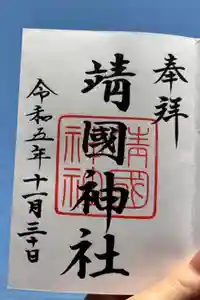 奉拝
靖國神社
令和五年十一月三十日
靖國
神社